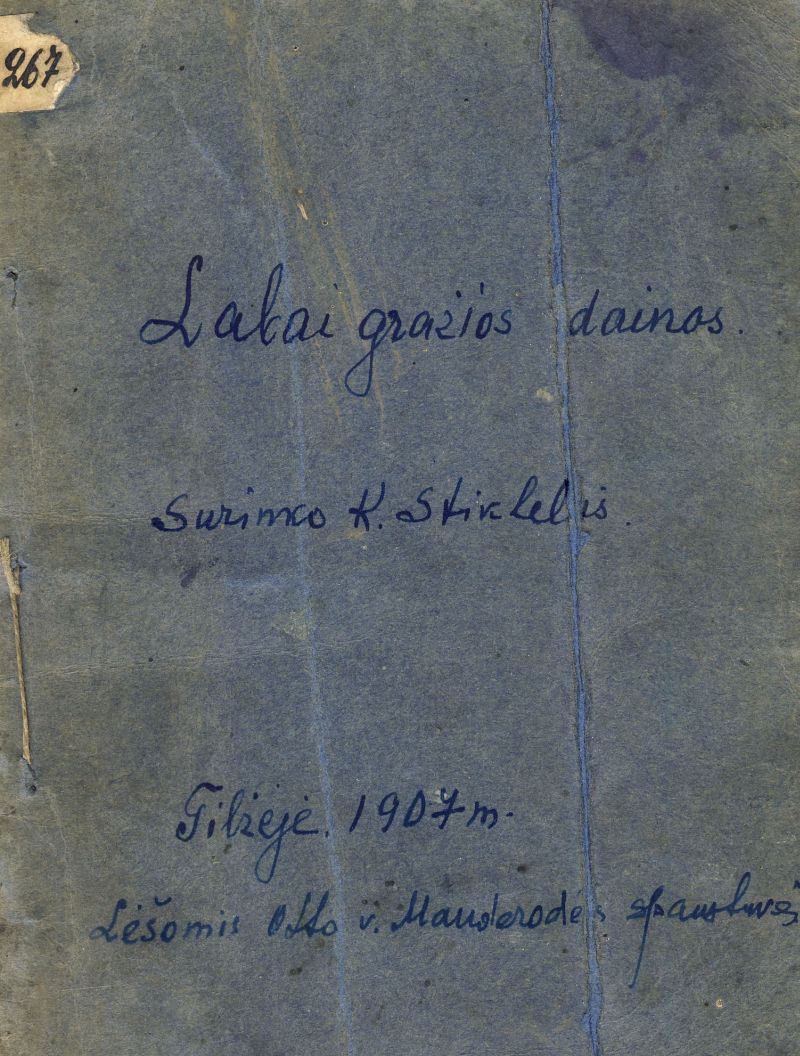 267
Labai gražios dainos.
Surinko K. Stiklelis.
Tilžėje. 1907 m.
Lėšomis Otto v. Mauderodės spaustuvės